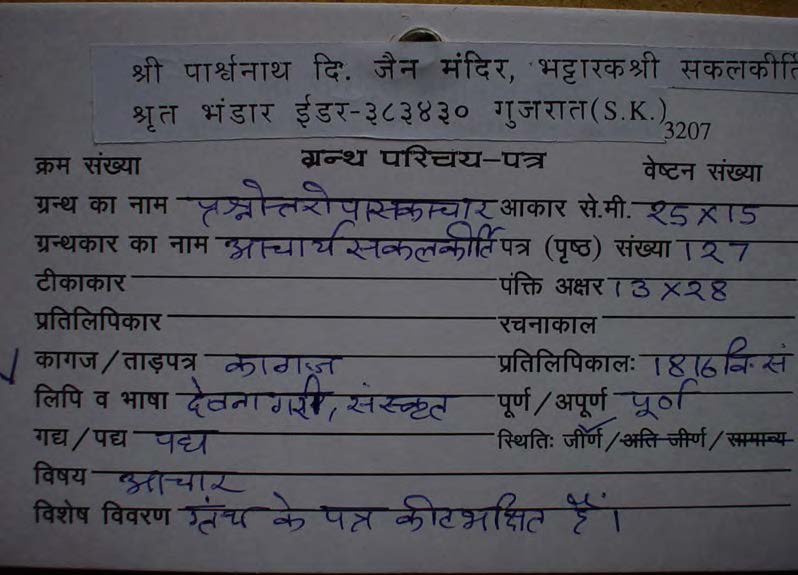 श्री पार्श्वनाथ दि. जैन मंदिर, भट्टारकश्री सकलकीर्ति
श्रृत भंडार ईडर-३८३४३० गुजरात(S.K.)
3207
क्रम संख्या ग्रन्थ परिचय-पत्र वेष्टन संख्या
ग्रन्थ का नाम प्रश्नोत्तरोपासकाचार आकार से.मी. 25 X 15
ग्रन्थकार का नाम आचार्य सकलकीर्ति पत्र (पृष्ठ) संख्या 127
टीकाकार पंक्ति अक्षर 13 X 28
प्रतिलिपिकार रचनाकाल
कागज/ताड़पत्र कागज प्रतिलिपिकालः 1816 वि. सं
लिपि व भाषा देवनागरी, संस्कृत पूर्ण/अपूर्ण पूर्ण
गद्य/पद्य पद्य स्थितिः जीर्ण/अति जीर्ण/सामान्य
विषय आचार
विशेष विवरण ग्रंथ के पत्र कीटभक्षित हैं।